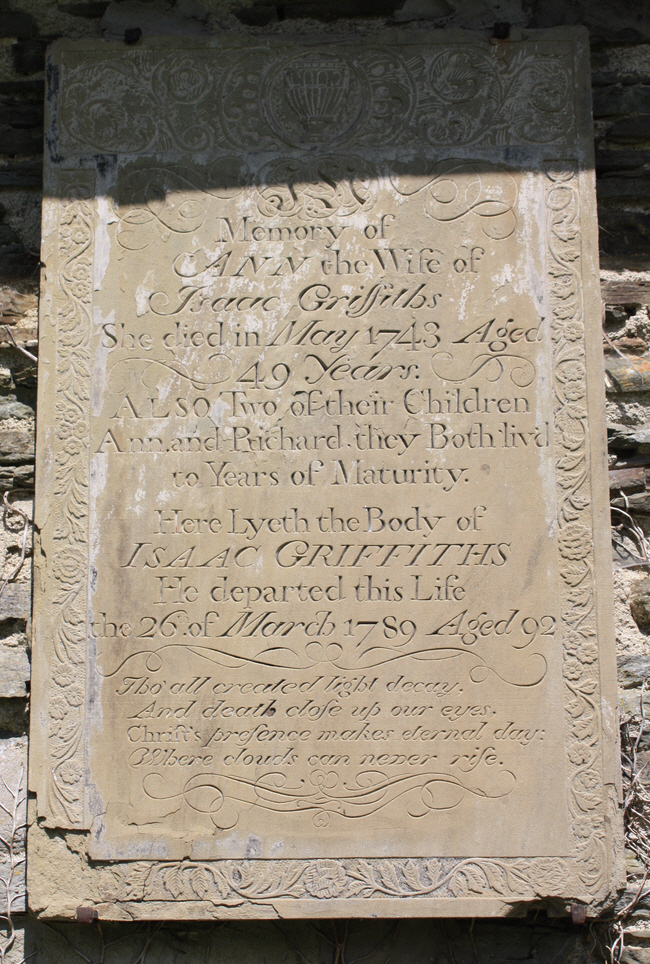 IN
Memory of
ANN the Wife of
Isaac Griffiths
She died in May 1743 Aged
49 Years.
ALSO Two of their Children
Ann and Richard they Both liv'd
to Years of Maturity.
Here Lyeth the Body of
ISAAC GRIFFITHS
He departed this Life
the 26 of March 1789 Aged 92
Tho' all created light decay,
And death close up our eyes.
Christ's presence makes eternal day:
Where clouds can never rise.